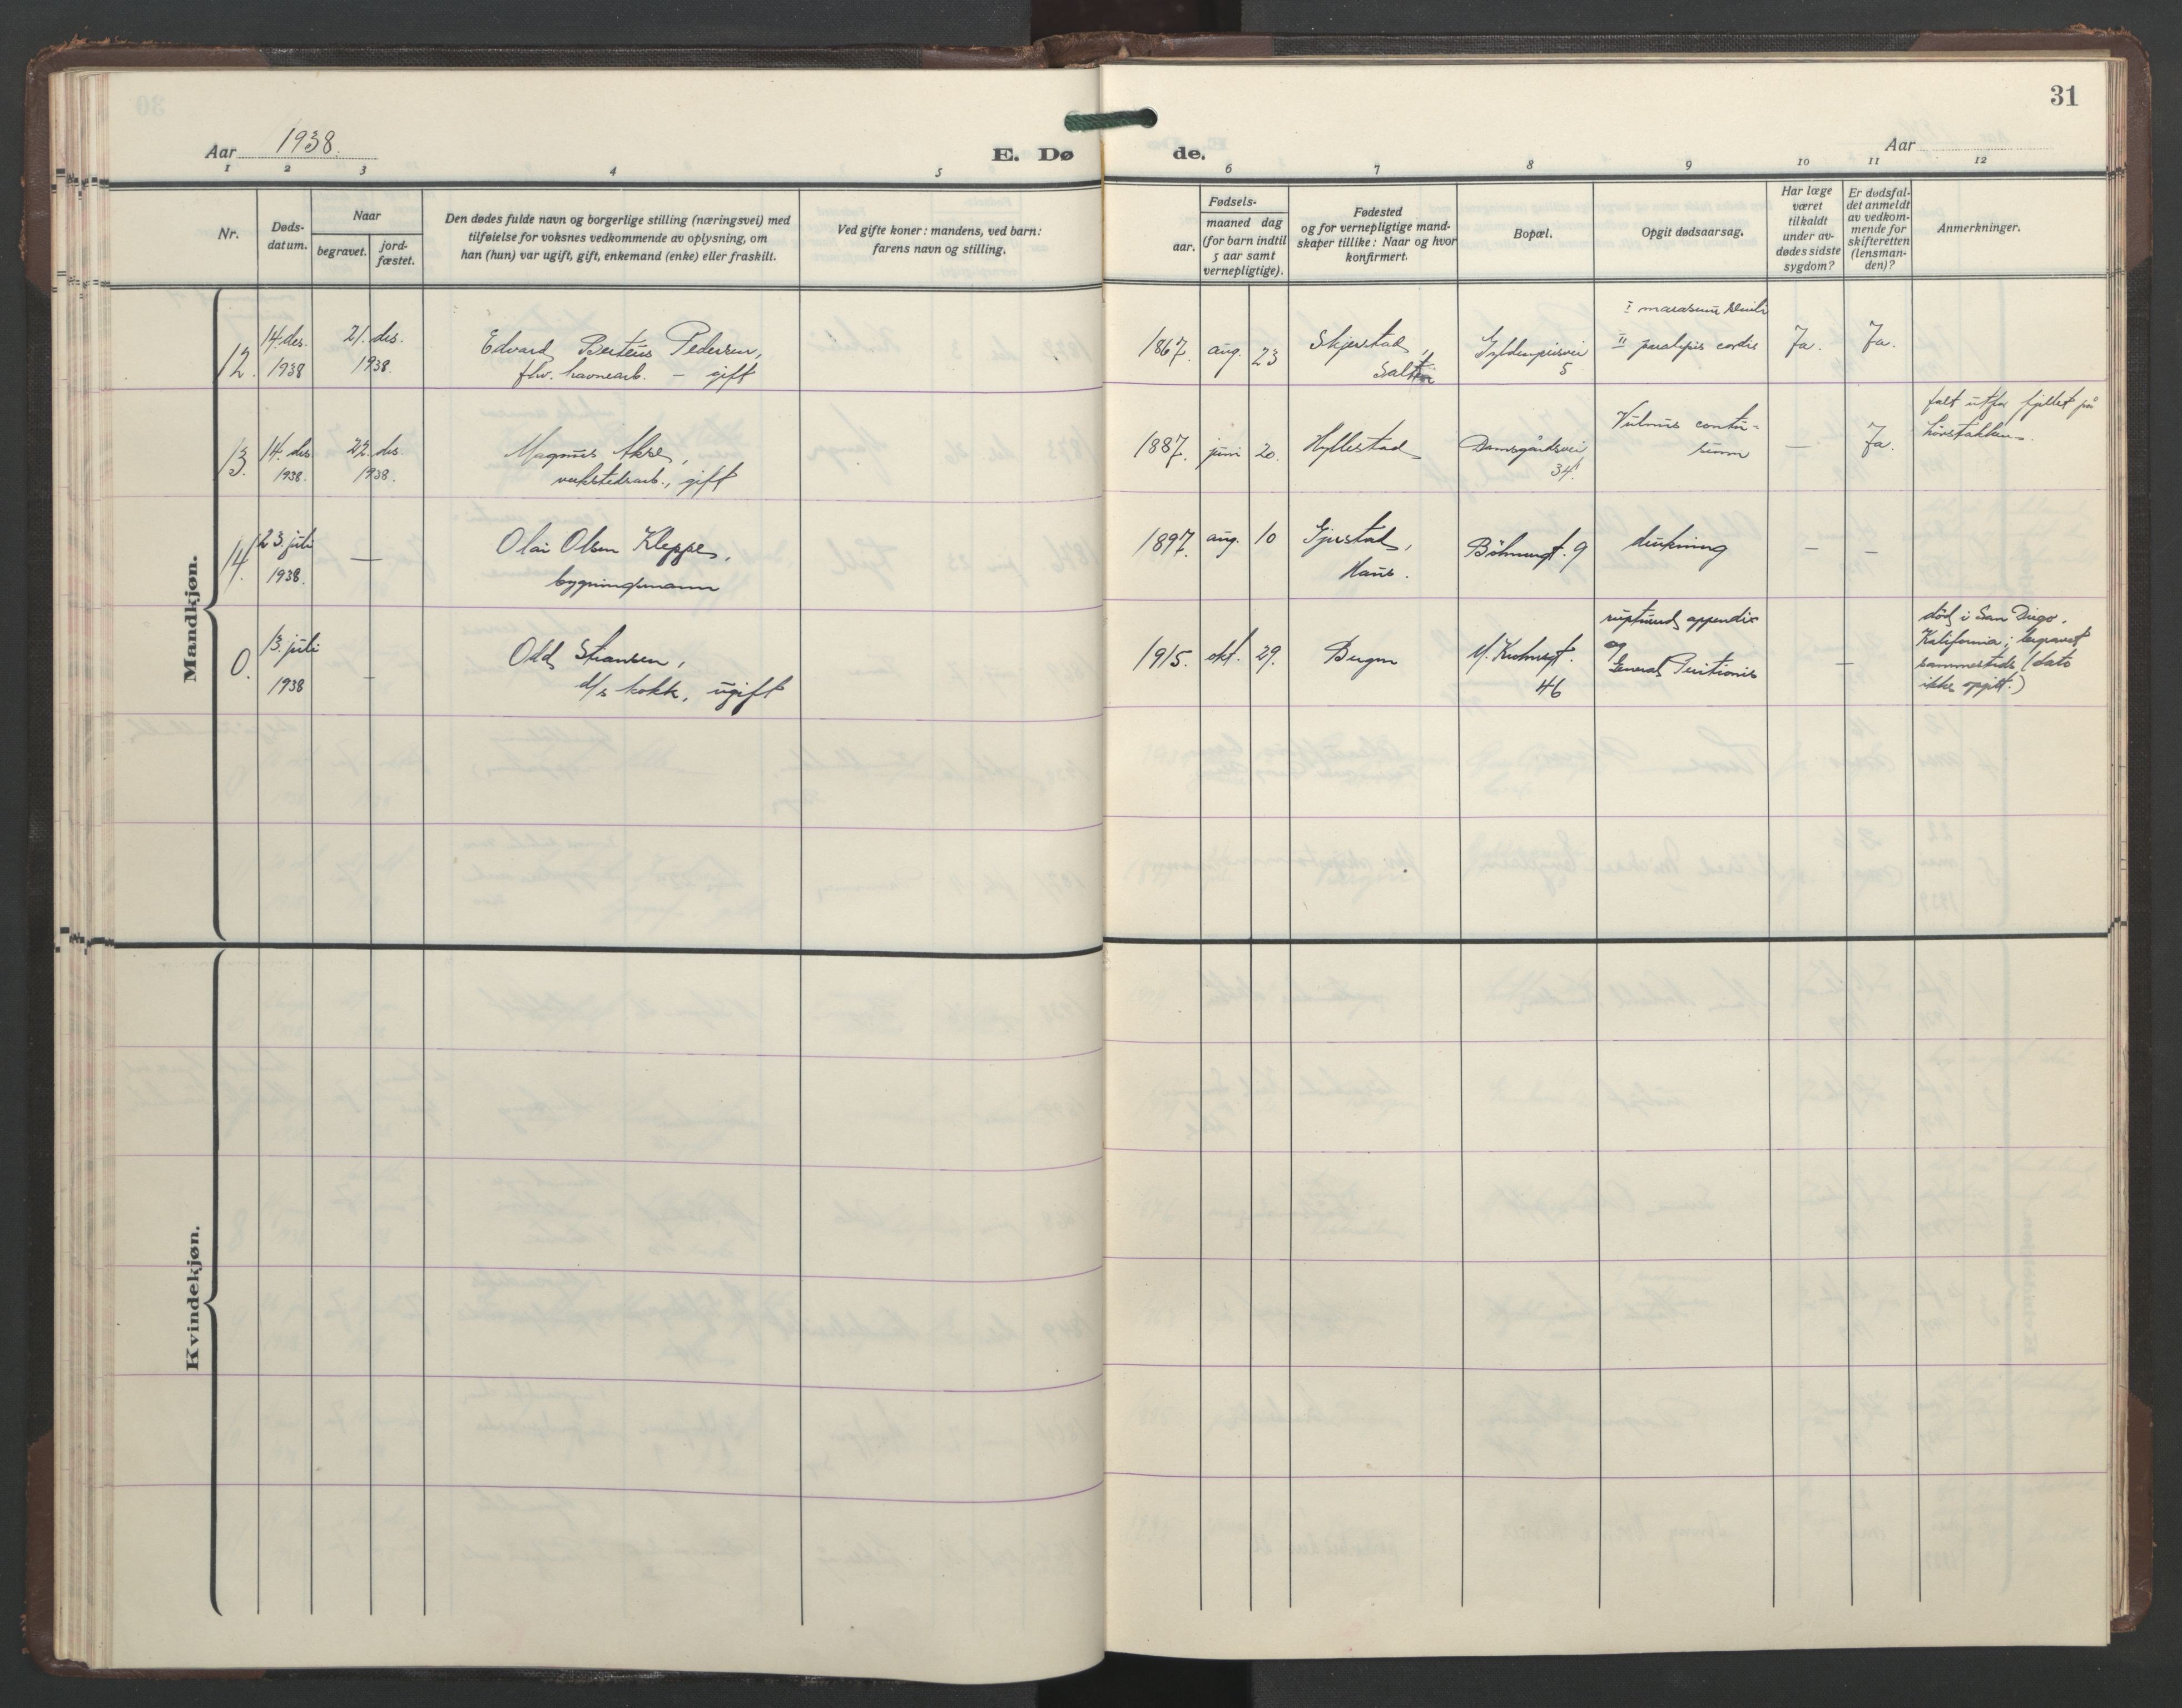 31
Aar 1938.
E. Dø
de.
Aar
1 2 3 4 5 6 7 8 9 10 11 12
Nr.
Døds-
datum.
Naar
begravet.
jord-
fæstet.
Den dødes fulde navn og borgerlige stilling (næringsvei) med
tilføielse for voksnes vedkommende av oplysning, om
han (hun) var ugift, gift, enkemand (enke) eller fraskilt.
Ved gifte koner: mandens, ved barn:
farens navn og stilling.
Fødsels-
aar.
maaned dag
(for barn indtil
5 aar samt
vernepligtige).
Fødested
og for vernepligtige mand-
skaper tillike: Naar og hvor
konfirmert.
Bopæl.
Opgit dødsaarsag.
Har læge
været
tilkaldt
under av-
dødes sidste
sygdom?
Er dødsfal-
det anmeldt
av vedkom-
mende for
skifteretten
(lensman-
den)?
Anmerkninger.
Mandkjøn.
12.
14. des.
1938
21. des.
1938.
Edvard Berteus Pedersen,
fhv. havnearb. – gift
1867. aug. 23
Skjerstad,
Salten
5
I marasmus senilis
II paralysis cordis
Ja.
Ja.
13.
14. des
1938.
22. des.
1938.
Magnus Akre,
verkstedsarb., gift
1887. juni 20.
Hyllestad
Damsgårdsvei
34.
Vulnus contu-
sum
—
Ja.
falt utfor fjellet på
14.
23. juli
1938.
—
Olai Olsen Kleppe,
bygningsmann
1897. aug. 10
Gjerstad,
Haus.
Böhmergt. 9
drukning
–
–
0.
13. juli
1938
–
Odd Stransen,
d/s kokk, ugift
1915. okt. 29.
Bergen
46
ruptured appendix
og
General Peritionis
–
död i San Diego,
Kalifornia; begravet
sammesteds (dato
ikke opgitt.)
Kvindekjøn.